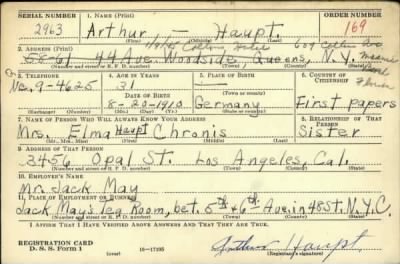 SERIAL NUMBER 1. NAME (Print) ORDER NUMBER
2963 Arthur — Haupt. 169
(First) (Middle) (Last)
2. ADDRESS (Print)
58-61 44 Ave. Woodside Queens, N.Y.
(Number and street or R. F. D. number) (Town) (County) (State)
3. TELEPHONE 4. AGE IN YEARS 5. PLACE OF BIRTH 6. COUNTRY OF CITIZENSHIP
31 —
DATE OF BIRTH
9-4625 8-20-1910 Germany First papers
(Exchange) (Number) (Mo.) (Day) (Yr.) (State or country)
7. NAME OF PERSON WHO WILL ALWAYS KNOW YOUR ADDRESS 8. RELATIONSHIP OF THAT PERSON
Mrs. Elma Haupt Chronis Sister
(Mr., Mrs., Miss) (First) (Middle) (Last)
9. ADDRESS OF THAT PERSON
3456 Opal St. Los Angeles, Cal.
(Number and street or R. F. D. number) (Town) (County) (State)
10. EMPLOYER'S NAME
Mr. Jack May
11. PLACE OF EMPLOYMENT OR BUSINESS
Jack May's Tea Room, bet. 5th & 6th Ave. in 48 St. N.Y.C.
(Number and street or R. F. D. number) (Town) (County) (State)
I AFFIRM THAT I HAVE VERIFIED ABOVE ANSWERS AND THAT THEY ARE TRUE.
REGISTRATION CARD
D. S. S. Form 1 (over) 16—17105 Arthur Haupt
(Registrant's signature)